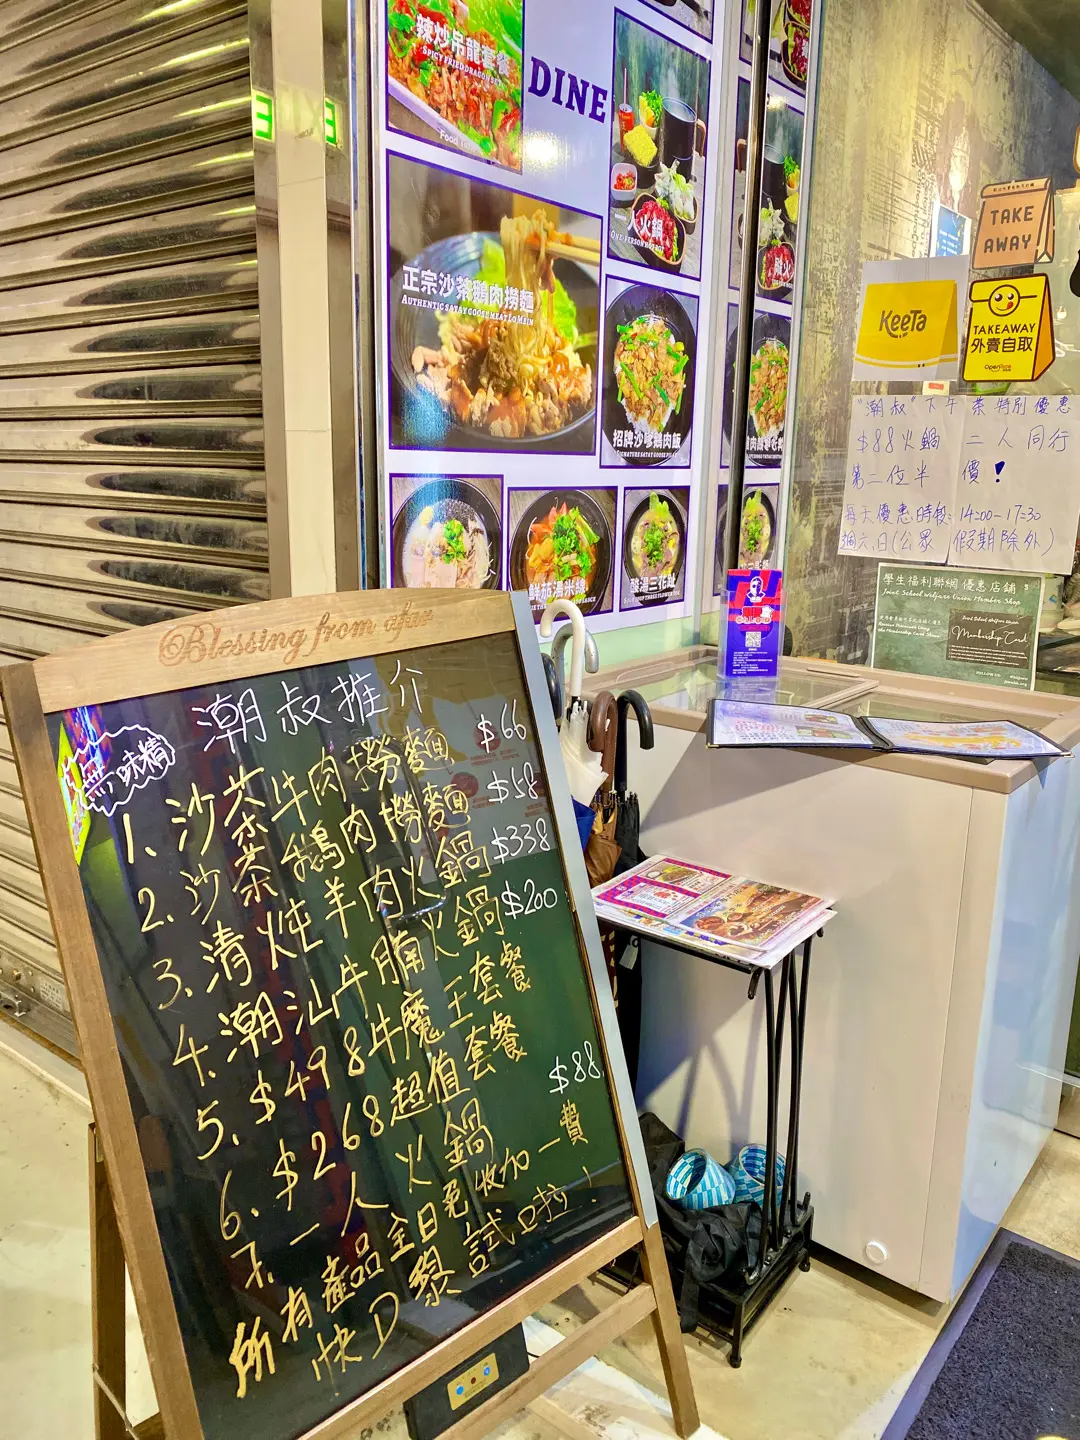 辣炒吊龍套餐
DINE
人火鍋
ONE-PERSON HOTPOT
正宗沙茶鵝肉撈麵
AUTHENTIC SATAY GOOSE MEAT LO MEIN
招牌沙嗲鵝肉飯
鮮茄湯米線
酸湯三花趾
TAKE
AWAY
KeeTa
TAKEAWAY
外賣自取
OpenRice
"潮叔"下午茶特別優惠
$88火鍋 二人同行
第二位半價!
每天優惠時段: 14:00-17:30
週六,日(公眾假期除外)
學生福利聯網 優惠店舖
Joint School Welfare Union Member Shop
Membership Card
Blessing from afar
潮叔推介
無味精
1. 沙茶牛肉撈麵 $66
2. 沙茶鵝肉撈麵 $58
3. 清炖羊肉火鍋 $338
4. 潮汕牛腩火鍋 $200
5. $498牛魔王套餐
6. $268超值套餐
7. 一人火鍋 $88
所有產品全日免收加一費
快D黎試口拉!